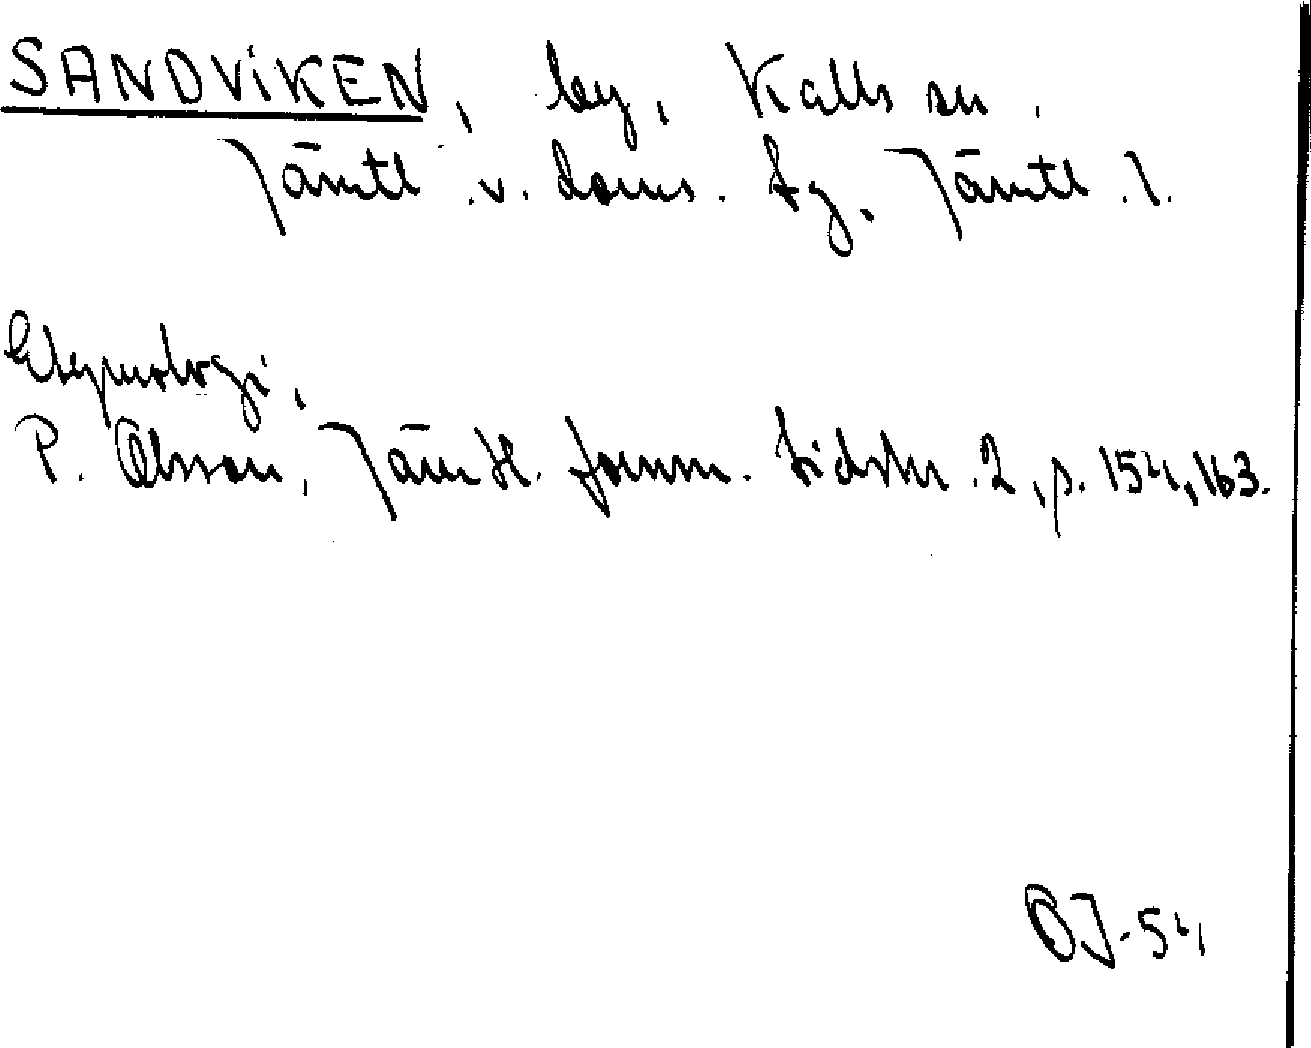 SANDVIKEN, by, Kalls sn,
Jämtl. v. doms. tg, Jämtl. l.
Etymologi,
P. Olsson, Jämtl. fornm. tidskr. 2, p. 154, 163.
OJ-54